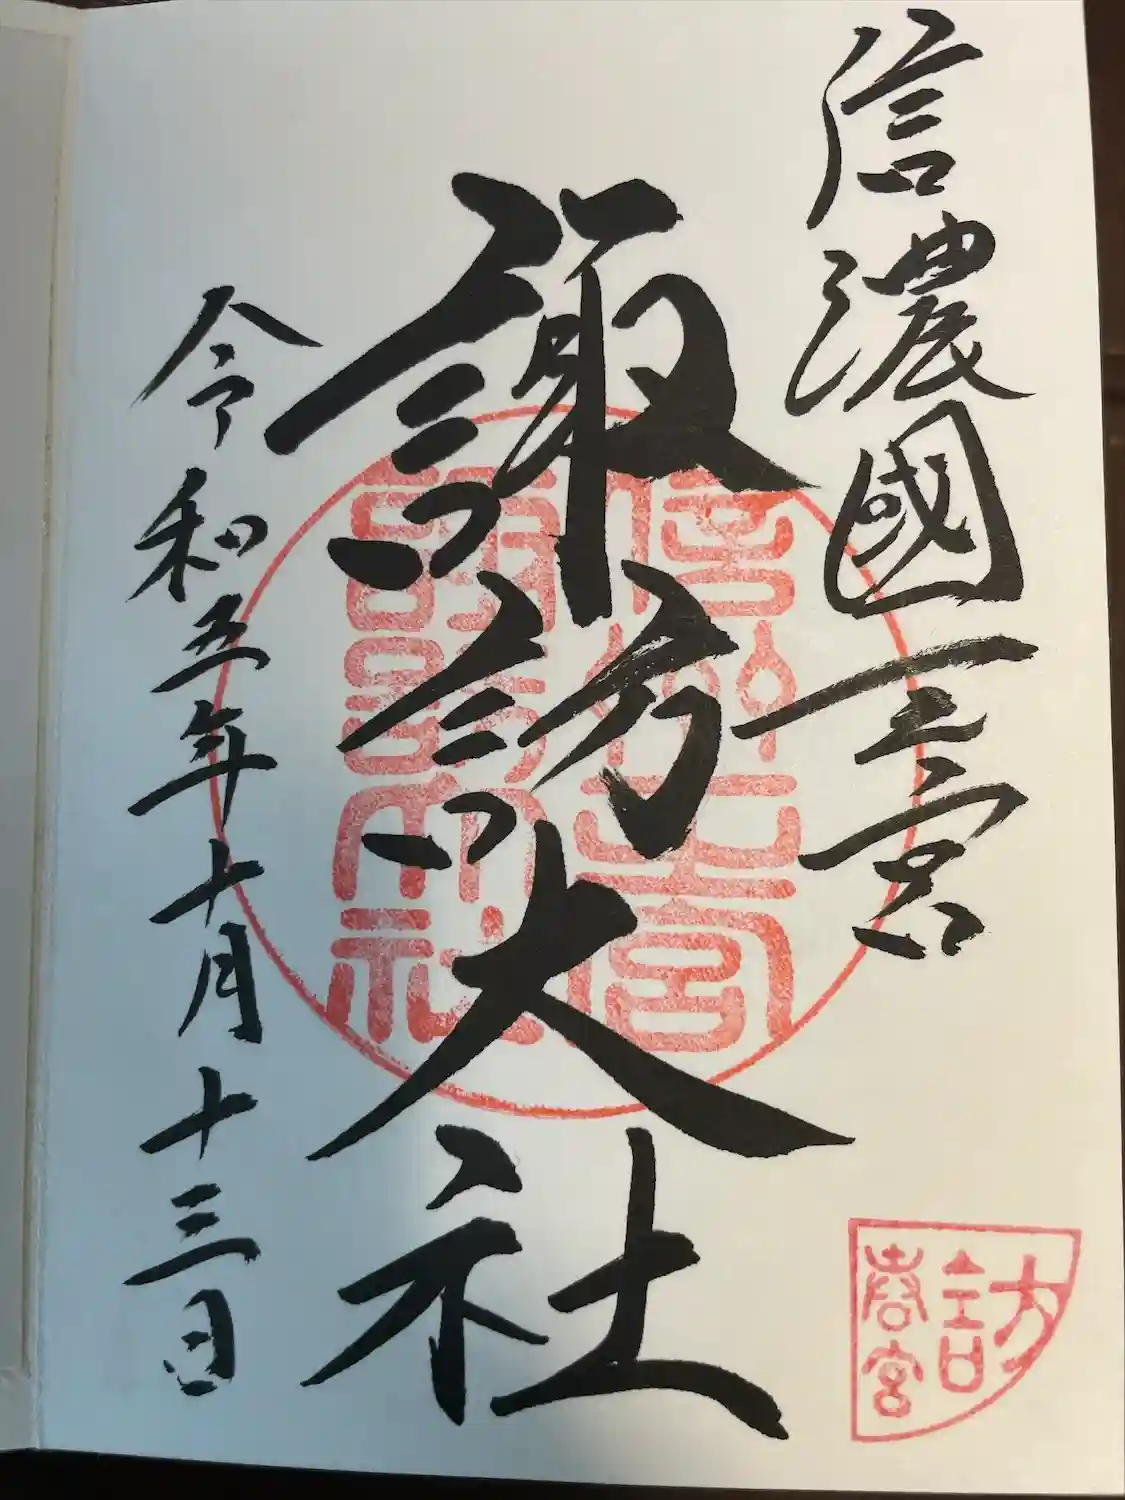 信濃國一之宮
諏訪大社
令和五年十月十三日
信州一之宮
諏訪大社
訪
春宮